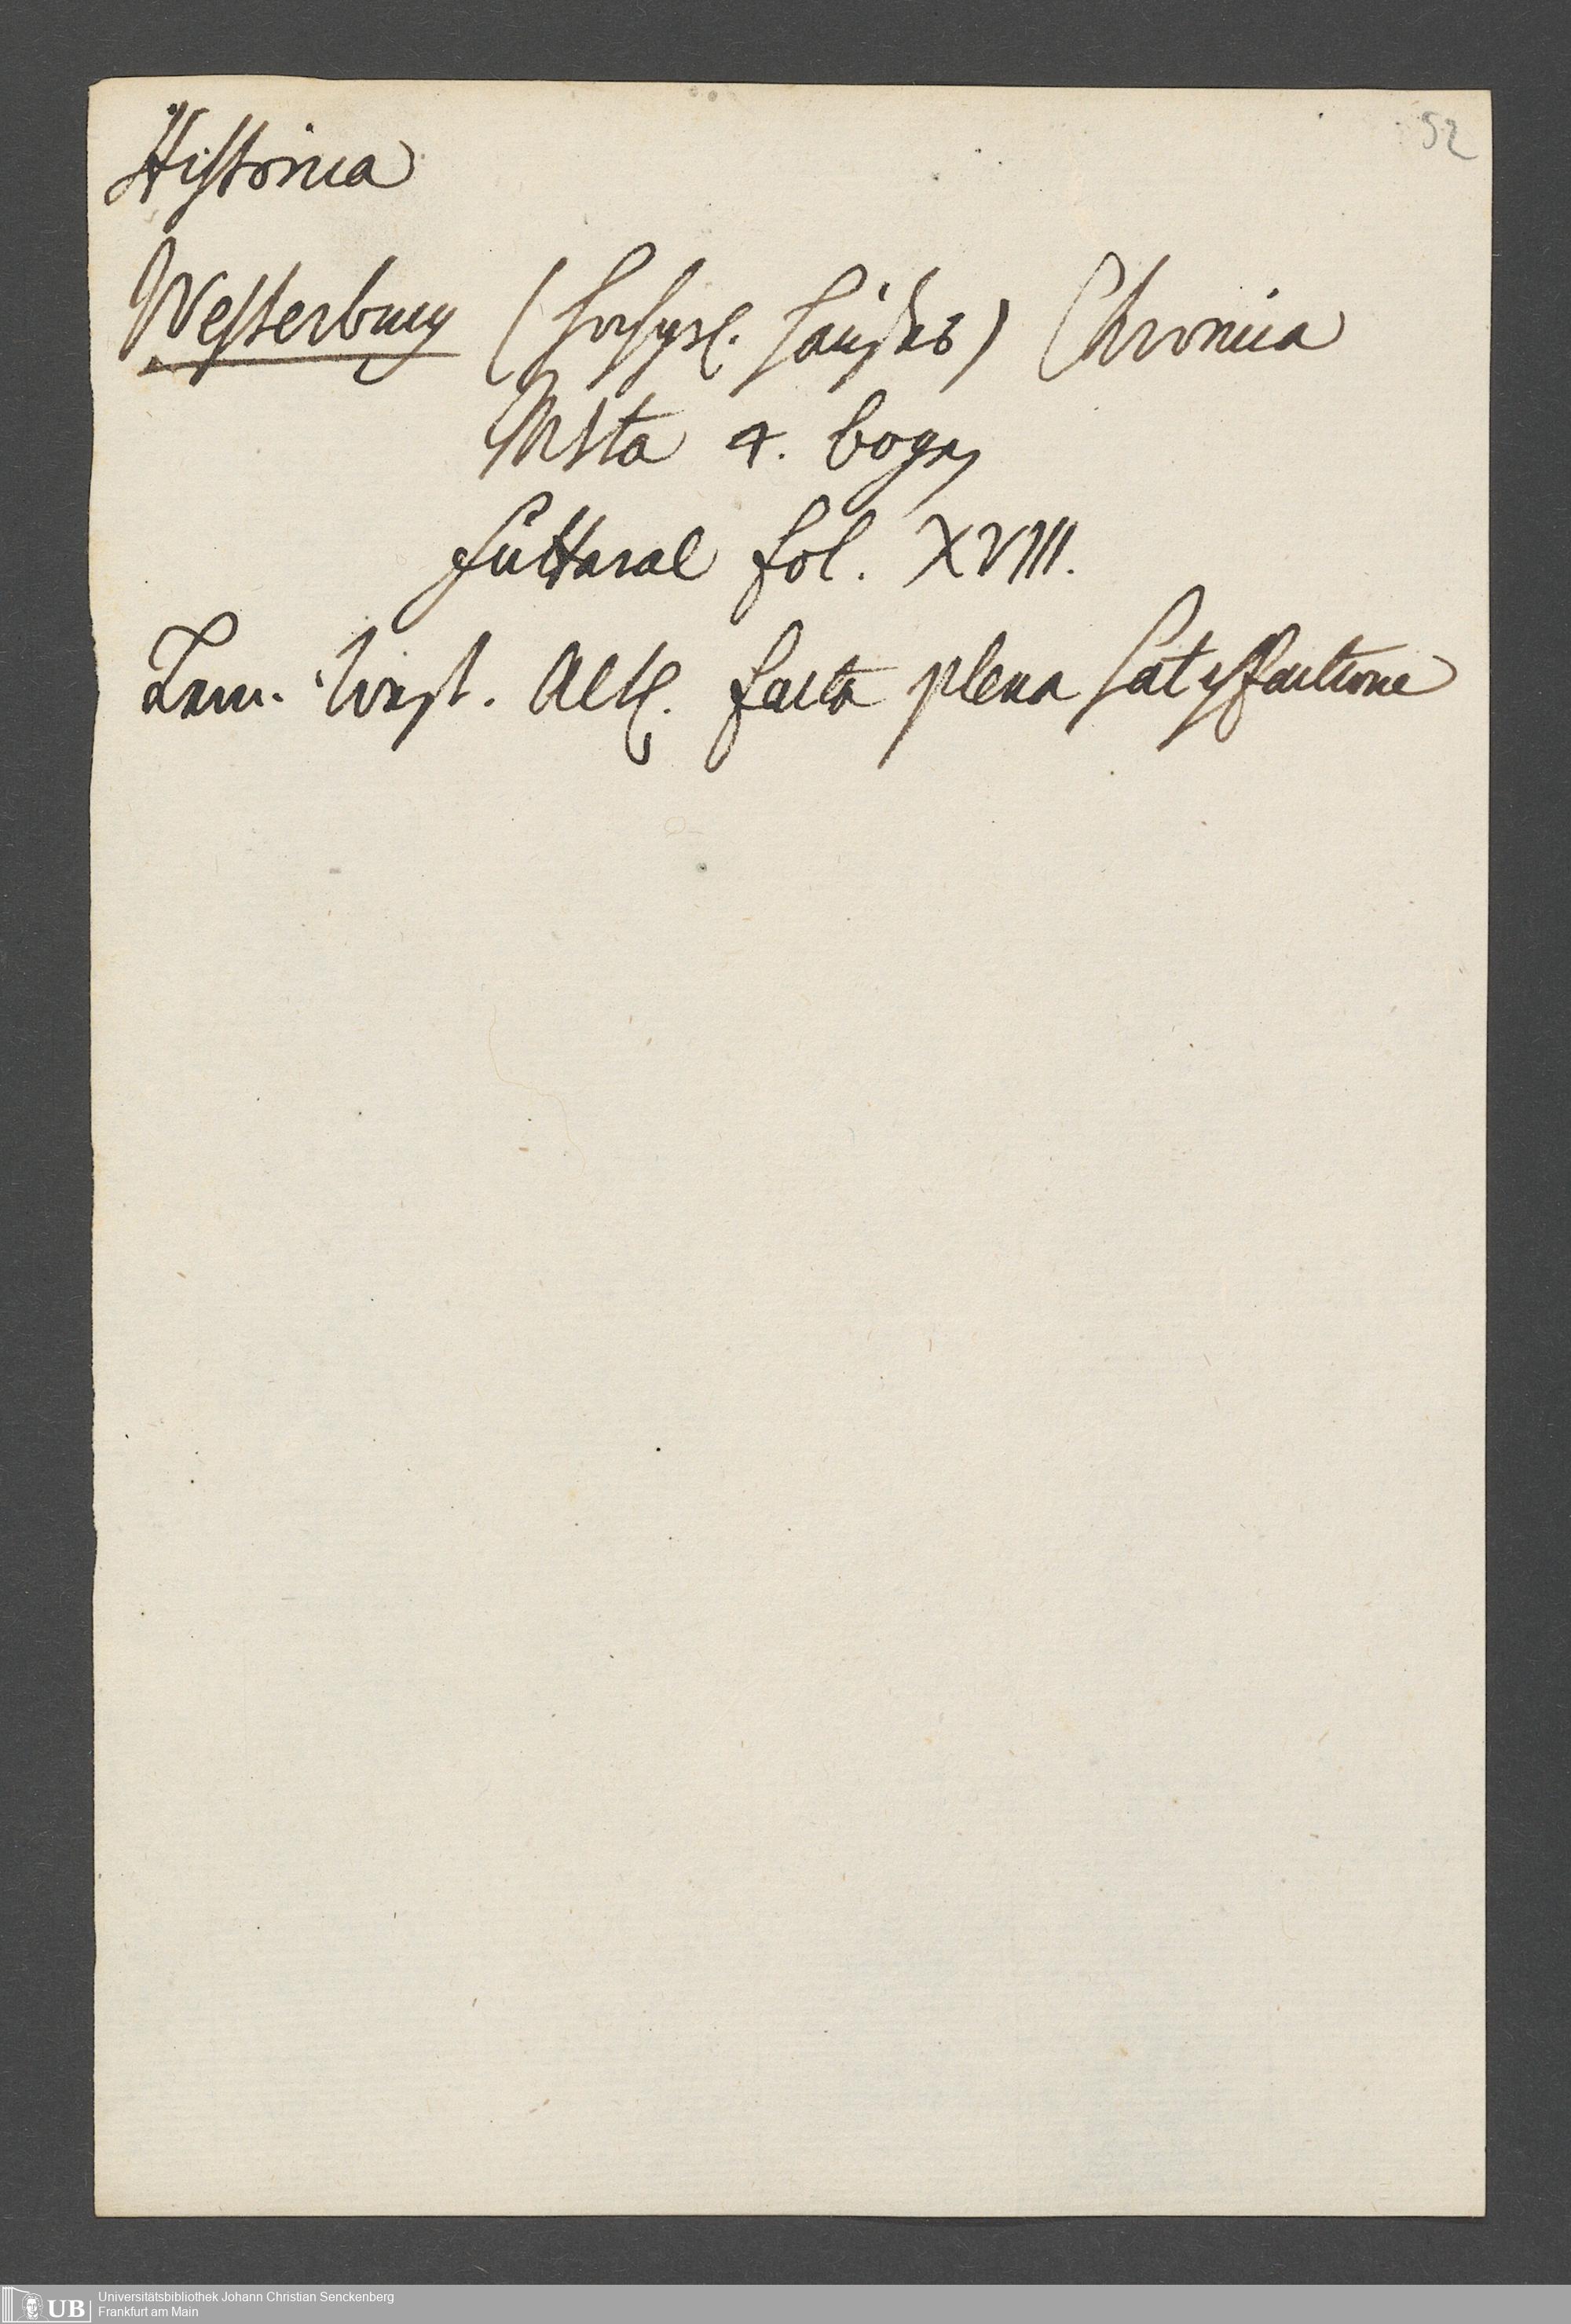 52
Historica
Westerburg (hochgrl. Hauses) Chronica
Msta 4. bogen
futteral fol. XVIII.
West. facta plena satisfactione
UB Universitätsbibliothek Johann Christian Senckenberg
Frankfurt am Main